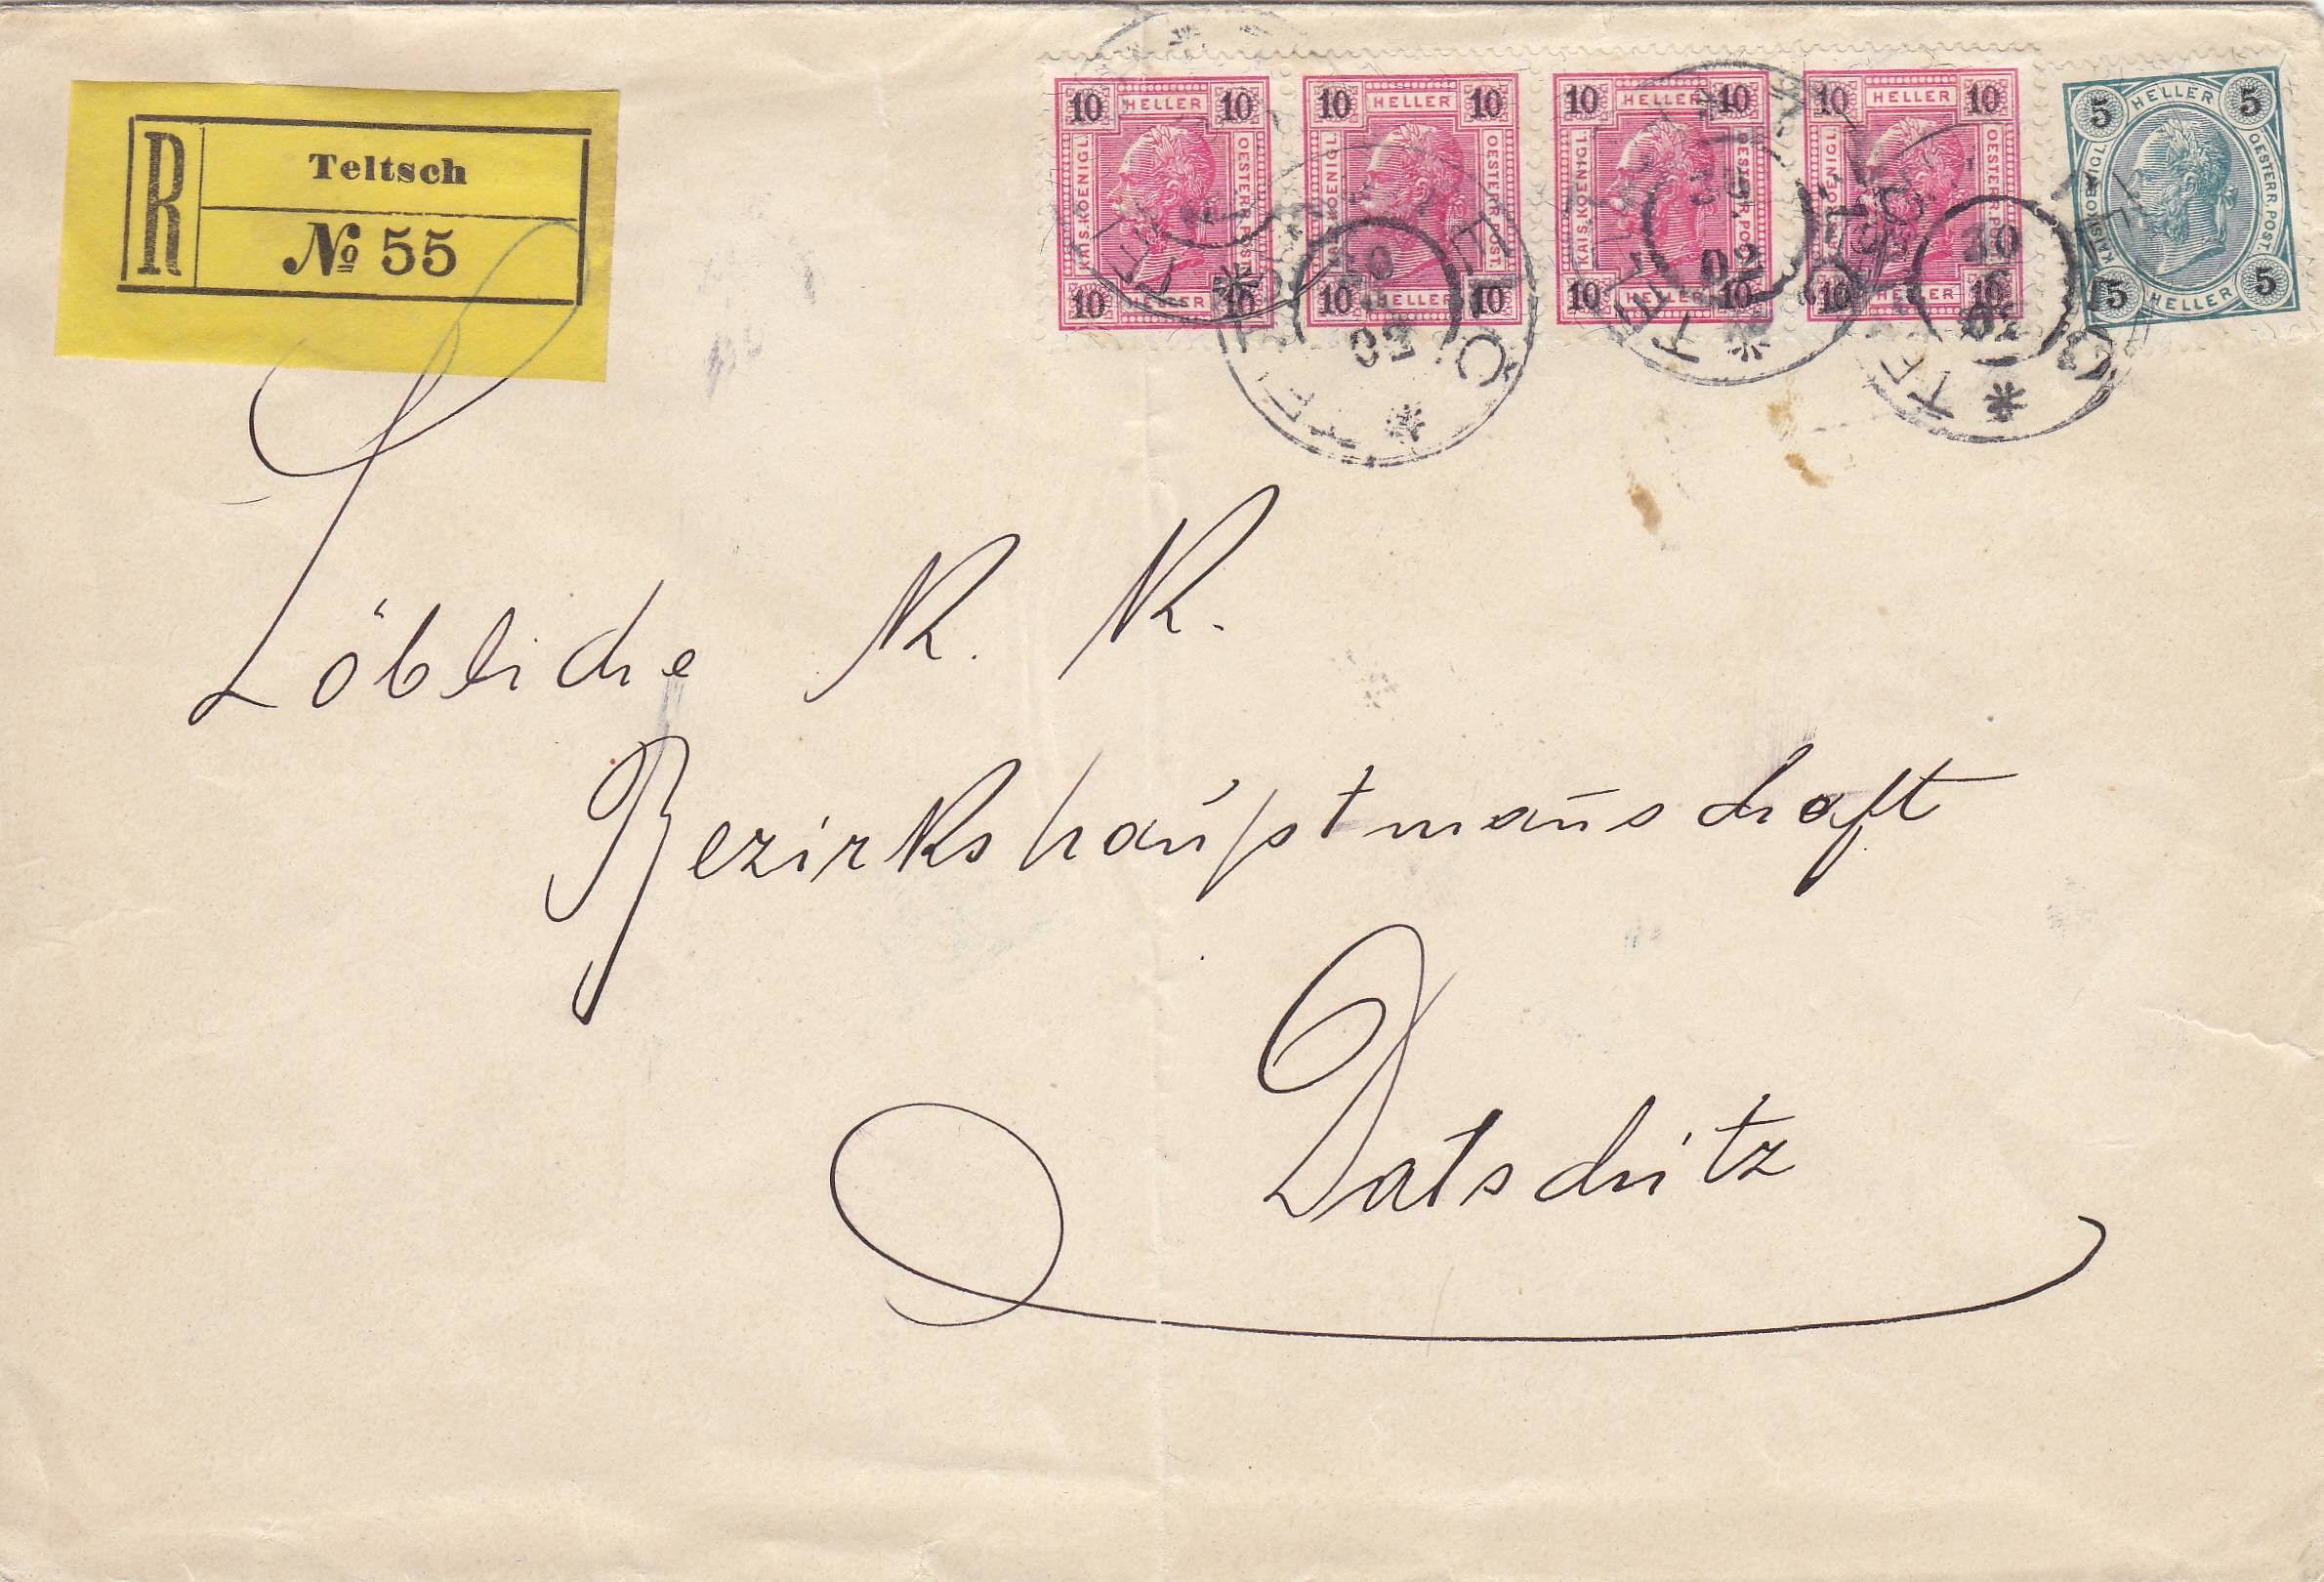 R
Teltsch
№ 55
10 HELLER 10
KAIS. KOENIGL. OESTERR. POST.
10 HELLER 10
10 HELLER 10
KAIS. KOENIGL. OESTERR. POST.
10 HELLER 10
10 HELLER 10
KAIS. KOENIGL. OESTERR. POST.
10 HELLER 10
10 HELLER 10
KAIS. KOENIGL. OESTERR. POST.
10 HELLER 10
5 HELLER 5
KAIS. KOENIGL. OESTERR. POST.
5 HELLER 5
02
30
Löbliche K. K.
Bezirkshauptman̄schaft
Datschitz